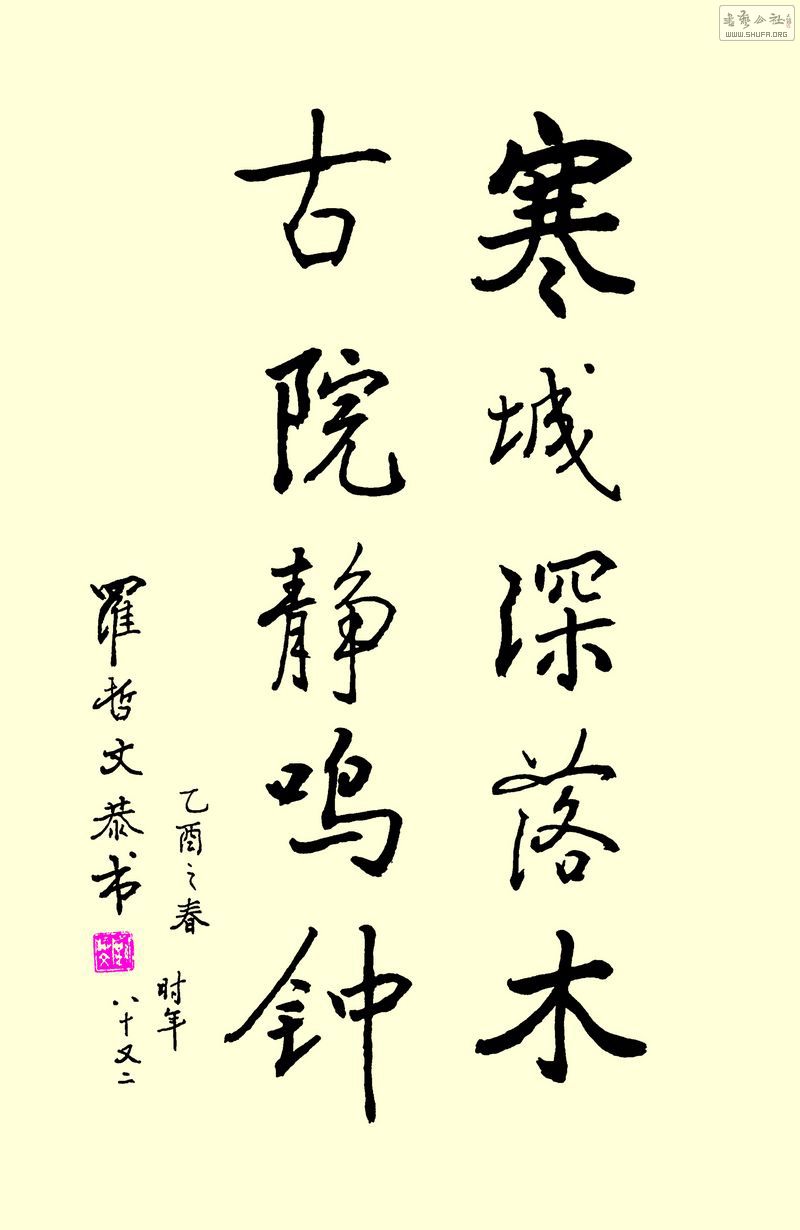 寒城深落木
古院静鸣钟
乙酉之春 时年
八十又二
罗哲文恭书
书艺公社
WWW.SHUFA.ORG